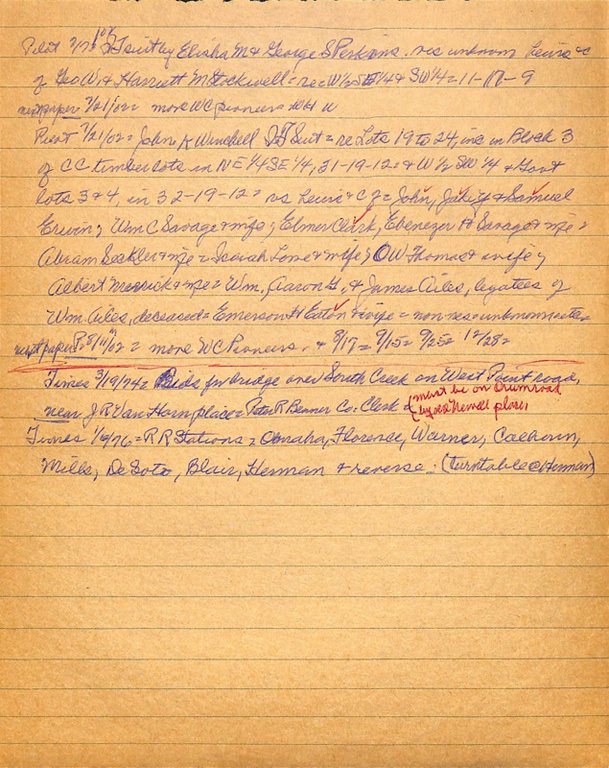 Pilot 7/7/02 QT suit by Elisha M & George S Perkins. vs unknown heirs &c
of Geo W. & Harriett M Stockwell = re W½ SE¼ & SW¼ = 11-17-9
next paper 7/21/02 = more WC pioneers
Pilot 7/21/02 = John K Winchell QT Suit = re Lots 19 to 24, inc in Block 3
of CC timber lots in NE¼ SE¼, 31-19-12 = & W½ SW¼ & Govt
lots 3 & 4, in 32-19-12 = vs heirs &c of = John, & Samuel
Erwin; Wm C Savage & wife; Elmer Clark, Ebenezer H Savage & wife =
Abram & wife = Isaiah Lowe & wife; OW Thomas & wife;
Albert Merrick & wife = Wm, Aaron G, & James Ailes, legatees of
Wm Ailes, deceased = Emerson H Eaton & wife = non res = unknown
next paper P. 8/11/02 = more WC Pioneers. & 8/17 = 9/15 = 9/25 = 12/28 =
Times 3/19/74 = Bids for bridge over South Creek on West Point road,
near J R Van Horn place = Peter R Benner Co. Clerk = (must be on Drumroad
(by old Newell place)
Times 1/6/76 = R R Stations = Omaha, Florence, Warner, Calhoun,
Mills, De Soto, Blair, Herman & reverse. (turntable @ Herman)